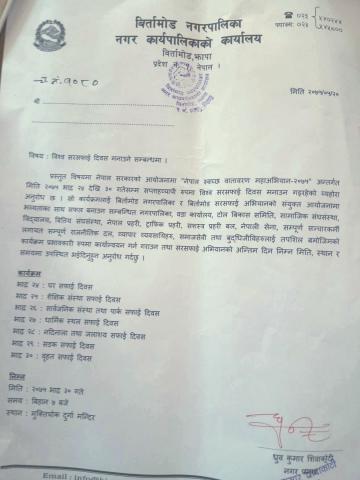 बिर्तामोड नगरपालिका
नगर कार्यपालिकाको कार्यालय
बिर्तामोड, झापा
प्रदेश नेपाल ।
☎ ०२३
फ्याक्स: ०२३
च.नं. १०८०
मिति २०७५/०५/२०
श्री
विषय : विश्व सरसफाई दिवस मनाउने सम्बन्धमा ।
प्रस्तुत विषयमा नेपाल सरकारको आयोजनामा "नेपाल स्वच्छ वातावरण महाअभियान-२०७५" अन्तर्गत
मिति २०७५ भाद्र २४ देखि ३० गतेसम्म सप्ताहव्यापी रुपमा विश्व सरसफाई दिवस मनाउन गइरहेको व्यहोरा
अनुरोध छ । सो कार्यक्रमलाई बिर्तामोड नगरपालिका र बिर्तामोड सरसफाई अभियानको संयुक्त आयोजनामा
भव्यताका साथ सफल बनाउन सम्बन्धित नगरपालिका, वडा कार्यालय, टोल बिकास समिति, सामाजिक संघसंस्था,
विद्यालय, वित्तिय संघसंस्था, नेपाल प्रहरी, ट्राफिक प्रहरी, सशस्त्र प्रहरी बल, नेपाली सेना, सम्पूर्ण सञ्चारकर्मी
लगायत सम्पूर्ण राजनीतिक दल, व्यापार व्यवसायिहरु, समाजसेवी तथा बुद्धिजीविहरुलाई तपशिल बमोजिमको
कार्यक्रम प्रभावकारी रुपमा कार्यान्वयन गर्न गराउन तथा सरसफाई अभियानको अन्तिम दिन निम्न मिति, स्थान र
समयमा उपस्थित भईदिनुहुन अनुरोध गर्दछु ।
कार्यक्रम
भाद्र २४ : घर सफाई दिवस
भाद्र २५ : शैक्षिक संस्था सफाई दिवस
भाद्र २६ : सार्वजनिक संस्था तथा पार्क सफाई दिवस
भाद्र २७ : धार्मिक स्थल सफाई दिवस
भाद्र २८ : नदिनाला तथा जलाशय सफाई दिवस
भाद्र २९ : सडक सफाई दिवस
भाद्र ३० : वृहत सफाई दिवस
निम्न
मिति : २०७५ भाद्र ३० गते
समय : बिहान ७ बजे
स्थान : मुक्तिचोक दुर्गा मन्दिर
ध्रुव कुमार शिवाकोटी
नगर प्रमुख
Email :